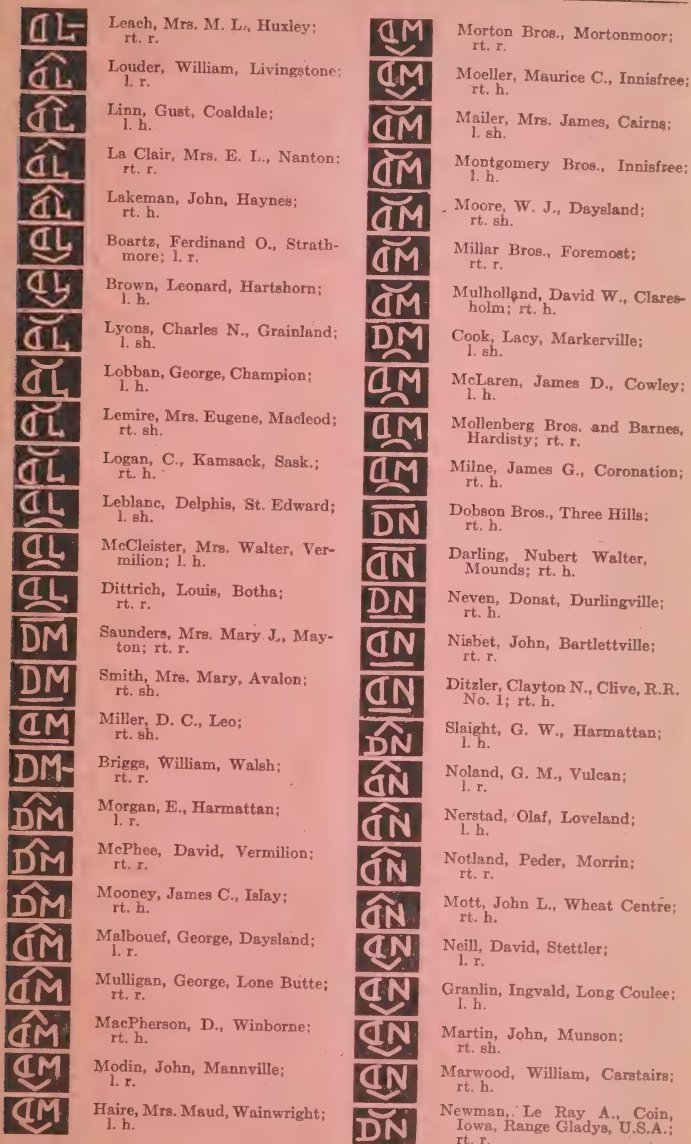 Leach, Mrs. M. L., Huxley;
rt. r.
Louder, William, Livingstone;
l. r.
Linn, Gust, Coaldale;
l. h.
La Clair, Mrs. E. L., Nanton;
rt. r.
Lakeman, John, Haynes;
rt. h.
Boartz, Ferdinand O., Strath-
more; l. r.
Brown, Leonard, Hartshorn;
l. h.
Lyons, Charles N., Grainland;
l. sh.
Lobban, George, Champion;
l. h.
Lemire, Mrs. Eugene, Macleod;
rt. sh.
Logan, C., Kamsack, Sask.;
rt. h.
Leblanc, Delphis, St. Edward;
l. sh.
McCleister, Mrs. Walter, Ver-
milion; l. h.
Dittrich, Louis, Botha;
rt. r.
DM Saunders, Mrs. Mary J., May-
ton; rt. r.
DM Smith, Mrs. Mary, Avalon;
rt. sh.
Miller, D. C., Leo;
rt. sh.
DM- Briggs, William, Walsh;
rt. r.
DM Morgan, E., Harmattan;
l. r.
DM McPhee, David, Vermilion;
rt. r.
DM Mooney, James C., Islay;
rt. h.
Malbouef, George, Daysland;
l. r.
Mulligan, George, Lone Butte;
rt. r.
MacPherson, D., Winborne;
rt. h.
Modin, John, Mannville;
l. r.
Haire, Mrs. Maud, Wainwright;
l. h.
Morton Bros., Mortonmoor;
rt. r.
Moeller, Maurice C., Innisfree;
rt. h.
Mailer, Mrs. James, Cairns;
l. sh.
Montgomery Bros., Innisfree;
l. h.
Moore, W. J., Daysland;
rt. sh.
Millar Bros., Foremost;
rt. r.
Mulholland, David W., Clares-
holm; rt. h.
DM Cook, Lacy, Markerville;
l. sh.
McLaren, James D., Cowley;
l. h.
Mollenberg Bros. and Barnes,
Hardisty; rt. r.
Milne, James G., Coronation;
rt. h.
DN Dobson Bros., Three Hills;
rt. h.
Darling, Nubert Walter,
Mounds; rt. h.
DN Neven, Donat, Durlingville;
rt. h.
Nisbet, John, Bartlettville;
rt. r.
Ditzler, Clayton N., Clive, R.R.
No. 1; rt. h.
DN Slaight, G. W., Harmattan;
l. h.
Noland, G. M., Vulcan;
l. r.
Nerstad, Olaf, Loveland;
l. h.
Notland, Peder, Morrin;
rt. r.
Mott, John L., Wheat Centre;
rt. h.
Neill, David, Stettler;
l. r.
Granlin, Ingvald, Long Coulee;
l. h.
Martin, John, Munson;
rt. sh.
Marwood, William, Carstairs;
rt. h.
DN Newman, Le Ray A., Coin,
Iowa, Range Gladys, U.S.A.;
rt. r.